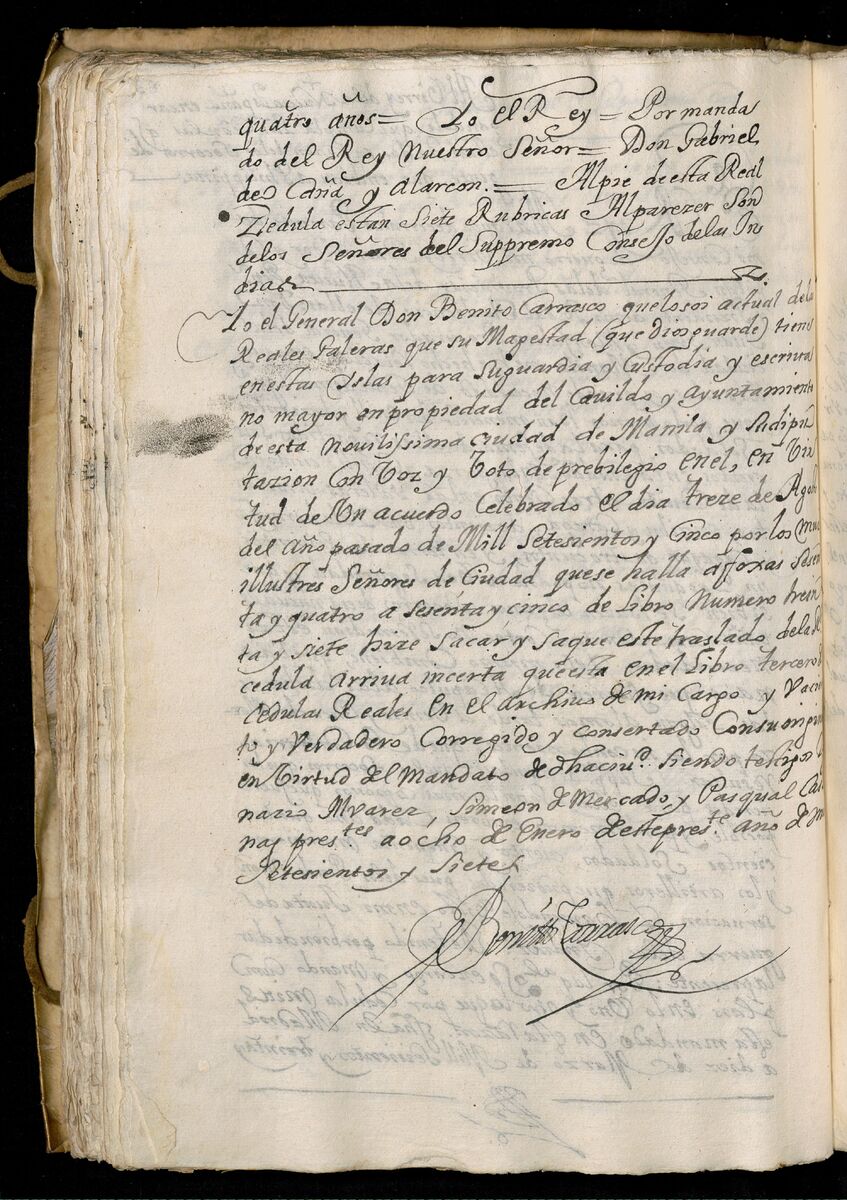 quatro años = Yo el Rey = Por manda
do del Rey Nuestro Señor = Don Gabriel
de Ocaña y Alarcon. = Al pie de esta Real
Zedula estan Siete Rubricas Al parezer Son
de los Señores del Suppremo Consejo de las In
dias
Yo el General Don Benito Carrasco que lo soi actual de las
Reales Galeras que su Magestad (que dios guarde) tiene
en estas Yslas para Su guardia y Custodia y escriva
no mayor en propiedad del Cavildo y Ayuntamiento
de esta novilissima ciudad de Manila y Su dipu
tazion Con Voz y Voto de prebilegio en el, en Vir
tud de Un acuerdo Celebrado el dia treze de Agosto
del Año pasado de Mill Setesientos y Cinco por los mui
illustres Señores de Ciudad que se halla a foxas Sesen
ta y quatro a Sesenta y cinco de Libro Numero trein
ta y siete hize Sacar y Saque este traslado de la Rl
cedula arriva incerta que esta en el Libro tercero de
Cedulas Reales en el archivo de mi Cargo y Va cier
to y Verdadero Corregido y consertado Con su origin
en Virtud del Mandato de dha ciud. Siendo testigos
nazio Alvarez, Simeon de Mercado, y Pasqual
nas pres.tes a ocho de Enero de este pres.te año de m
Setesientos y Siete
Benito Carrasco